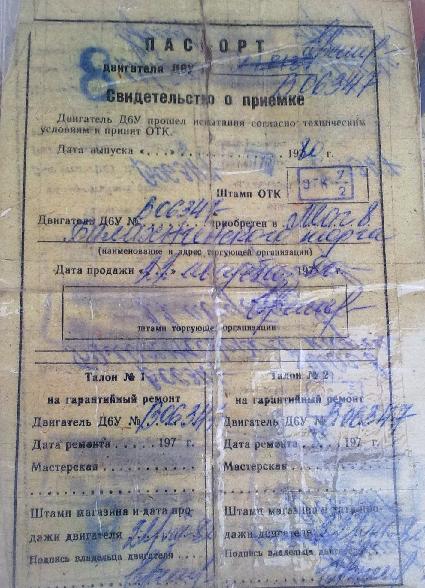 ПАСПОРТ
двигателя Д6У
В06347
Свидетельство о приемке
Двигатель Д6У прошел испытания согласно техническим
условиям и принят ОТК.
Дата выпуска «...» ........ 1980 г.
Штамп ОТК ОТК 2
Двигатель Д6У № В06347 приобретен в маг. 8
(наименование и адрес торгующей организации)
Дата продажи 197 г.
штамп торгующей организации
Талон № 1
на гарантийный ремонт
Двигатель Д6У № В06347
Дата ремонта ...... 197 г.
Мастерская
Штамп магазина и дата про-
дажи двигателя
Подпись владельца двигателя
Талон № 2
на гарантийный ремонт
Двигатель Д6У № В06347
Дата ремонта ...... 197 г.
Мастерская
Штамп магазина и дата про-
дажи двигателя
Подпись владельца двигателя